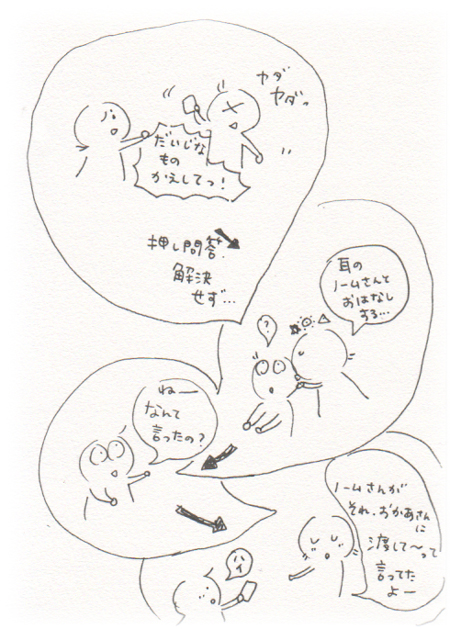 ヤダ
ヤダっ
だいじな
もの
かえしてっ！
押し問答。
解決
せず…
耳の
ノームさんと
おはなし
する…
？
ねー
なんて
言ったの？
ノームさんが
それ、おかあさん
に
渡して〜って
言ってた
よー
ハイ